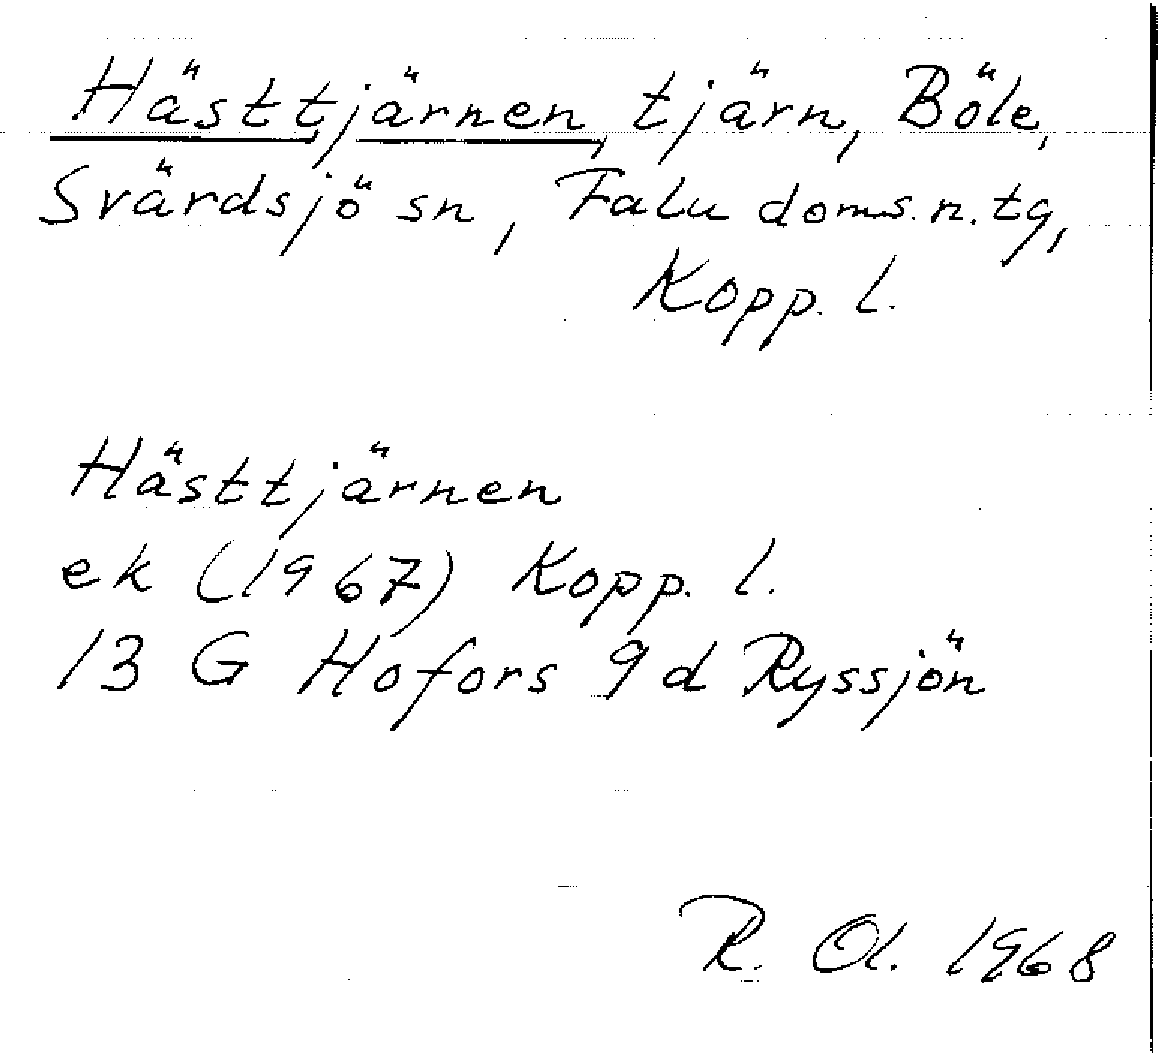 Hästtjärnen, tjärn, Böle,
Svärdsjö sn, Falu doms.n.tg,
Kopp. l.
Hästtjärnen
ek (1967) Kopp. l.
13 G Hofors 9 d Ryssjön
R. Ol. 1968